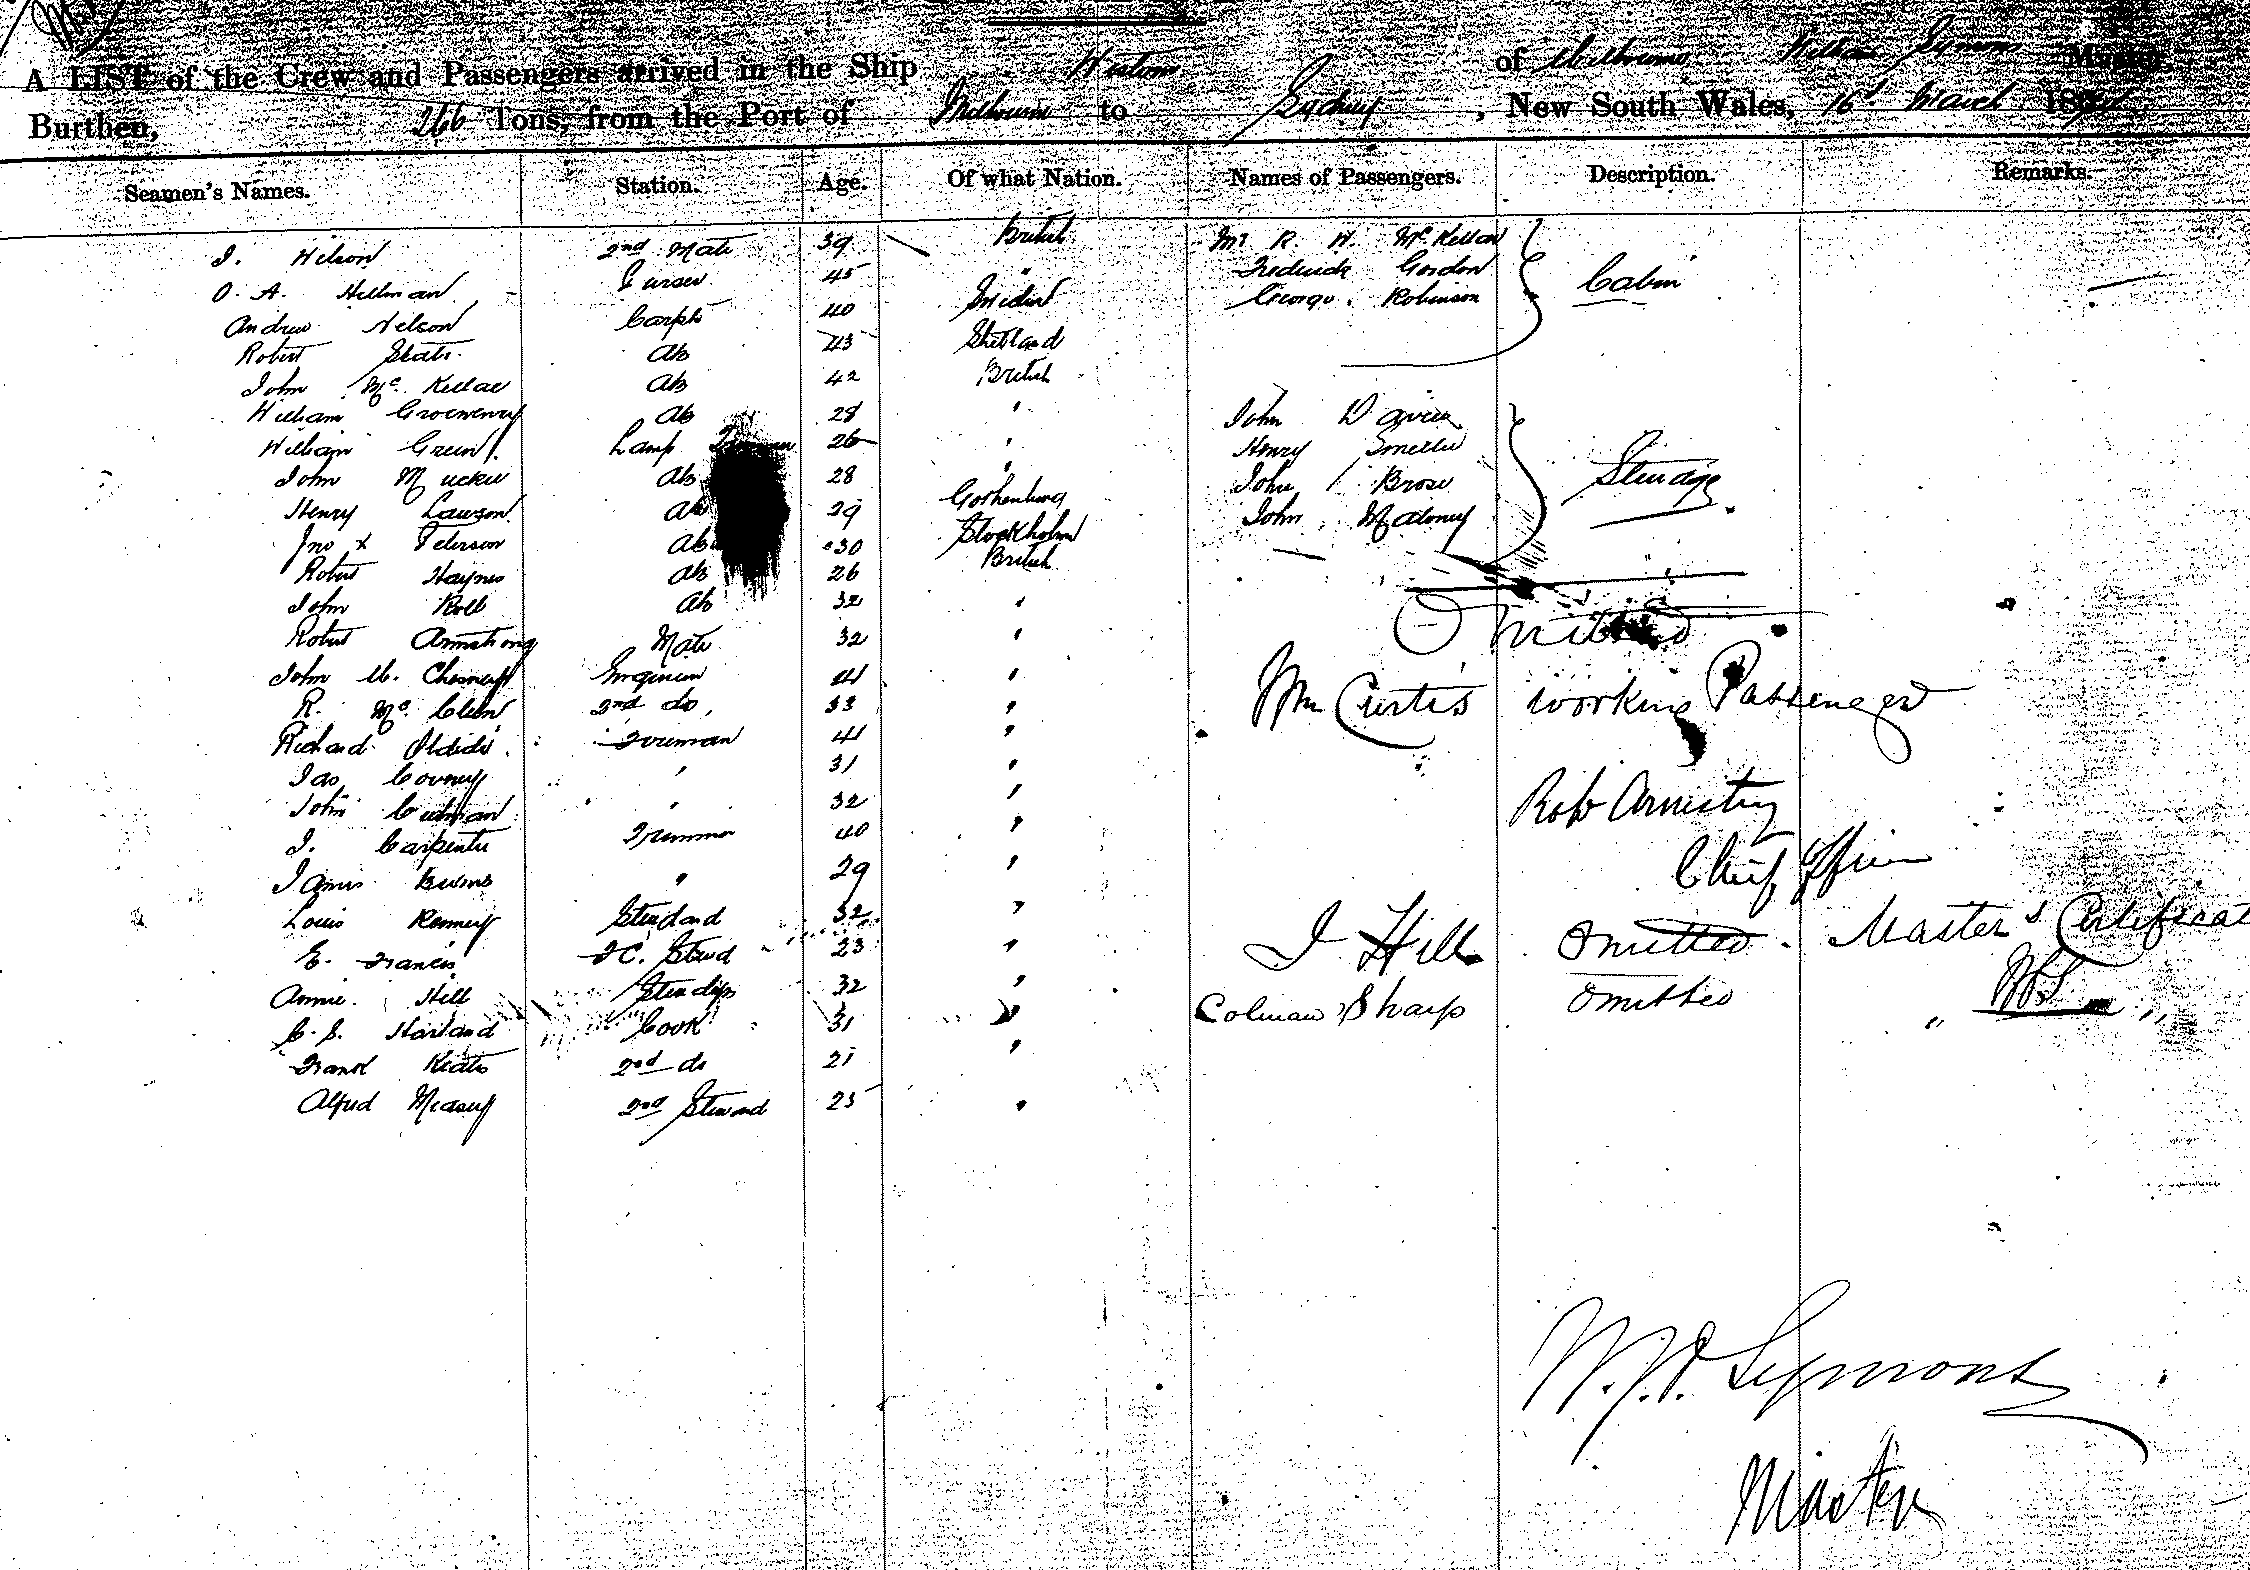 A LIST of the Crew and Passengers arrived in the Ship of Melbourne, William Symons Master,
Burthen, 266 Tons, from the Port of Melbourne to Sydney, New South Wales, 16th March 18
Seamen's Names. Station. Age. Of what Nation. Names of Passengers. Description. Remarks.
J. Wilson 2nd Mate 39 British Mr R. H. McKellar
O. A. Hillman Purser 45 " Frederick Gordon Cabin
Andrew Nelson Carptr 40 Swedish George Robinson
Robert Skate AB 43 Shetland
John McKellar AB 42 British
William AB 28 " John Davies
William Green Lamp Trimmer 26 " Henry Smellie
John Muckie AB 28 " John Brose Steerage
Henry Lawson AB 29 Gothenburg John Maloney
Jno x Peterson AB 30 Stockholm
Robert Haynes AB 26 British
John Roll AB 32 "
Robert Armstrong Mate 32 " Omitted
John M. Chesney Engineer 41 "
R. Mc 2nd do, 33 " Wm Curtis working Passenger
Richard Oldids Fireman 41 "
Jas Covney " 31 "
John " 32 " Rob Armstrong
J. Carpenter Trimmer 40 " Chief Officer
James Burns " 29 "
Louis Kenney Steward 32 "
E. Francis F.C. Stewd 23 " J Hill Omitted. Master's Certificate
Annie Hill Stewdess 32 " Colman Sharp Omitted " WS "
C. S. Harland Cook 31 "
Frank Keates 2nd do 21 "
Alfred Measey 2nd Steward 25 "
W. J. P. Symons
Master